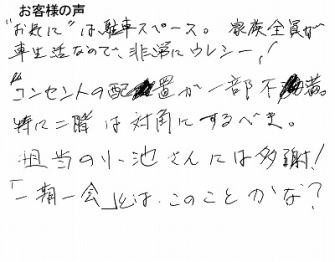 お客様の声
"お気に"は駐車スペース。家族全員が
車生活なので、非常にウレシー!
"コンセントの配置が一部不満。
特に二階は対角にするべき。
担当の小池さんには多謝!
「一期一会」とは、このことかな?